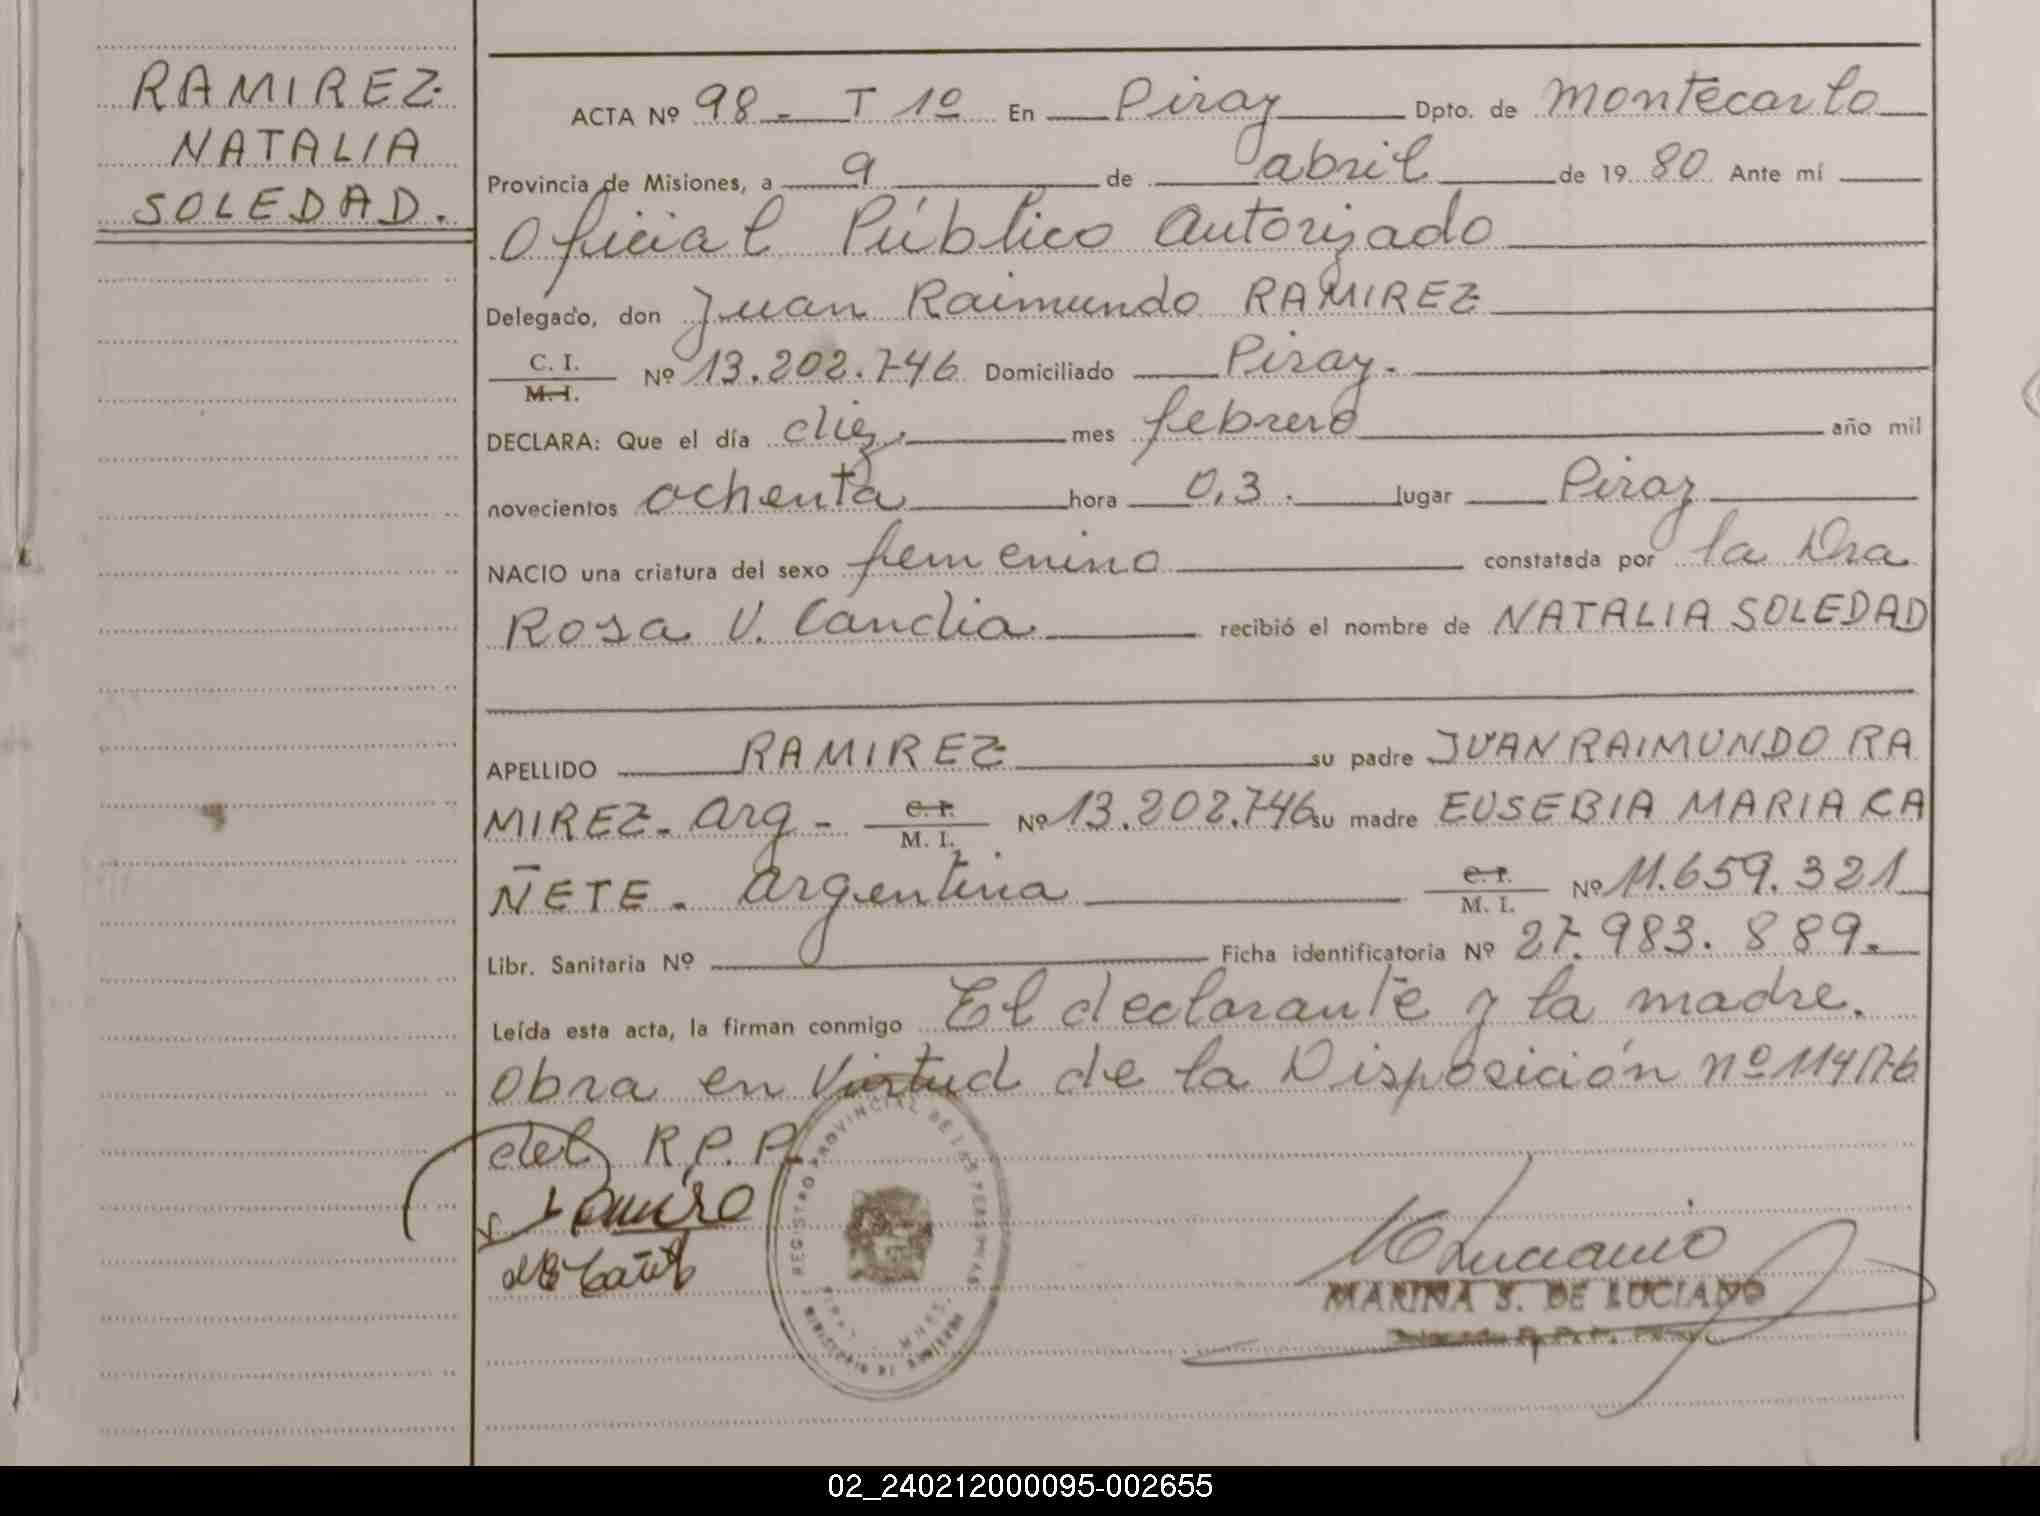 RAMIREZ
NATALIA
SOLEDAD.
ACTA Nº 98 - T 1º En Piray Dpto. de Montecarlo
Provincia de Misiones, a 9 de abril de 1980 Ante mí
Oficial Público Autorizado
Delegado, don Juan Raimundo RAMIREZ
C. I.
M. I. Nº 13.202.746 Domiciliado Piray.
DECLARA: Que el día diez. mes febrero año mil
novecientos ochenta hora 0,3. lugar Piray
NACIO una criatura del sexo femenino constatada por la Dra
Rosa V. Candia recibió el nombre de NATALIA SOLEDAD
APELLIDO RAMIREZ su padre JUAN RAIMUNDO RA
MIREZ - Arg - C. I.
M. I. Nº 13.202.746 su madre EUSEBIA MARIA CA
ÑETE - Argentina C. I.
M. I. Nº 11.659.321
Libr. Sanitaria Nº Ficha identificatoria Nº 27.983.889.
Leída esta acta, la firman conmigo El declarante y la madre.
Obra en Virtud de la Disposición nº
del R.P.P.
REGISTRO PROVINCIAL DE LAS PERSONAS
PIRAY - MNES.
MINISTERIO DE GOBIERNO
MARINA S. DE LUCIANO
02_240212000095-002655